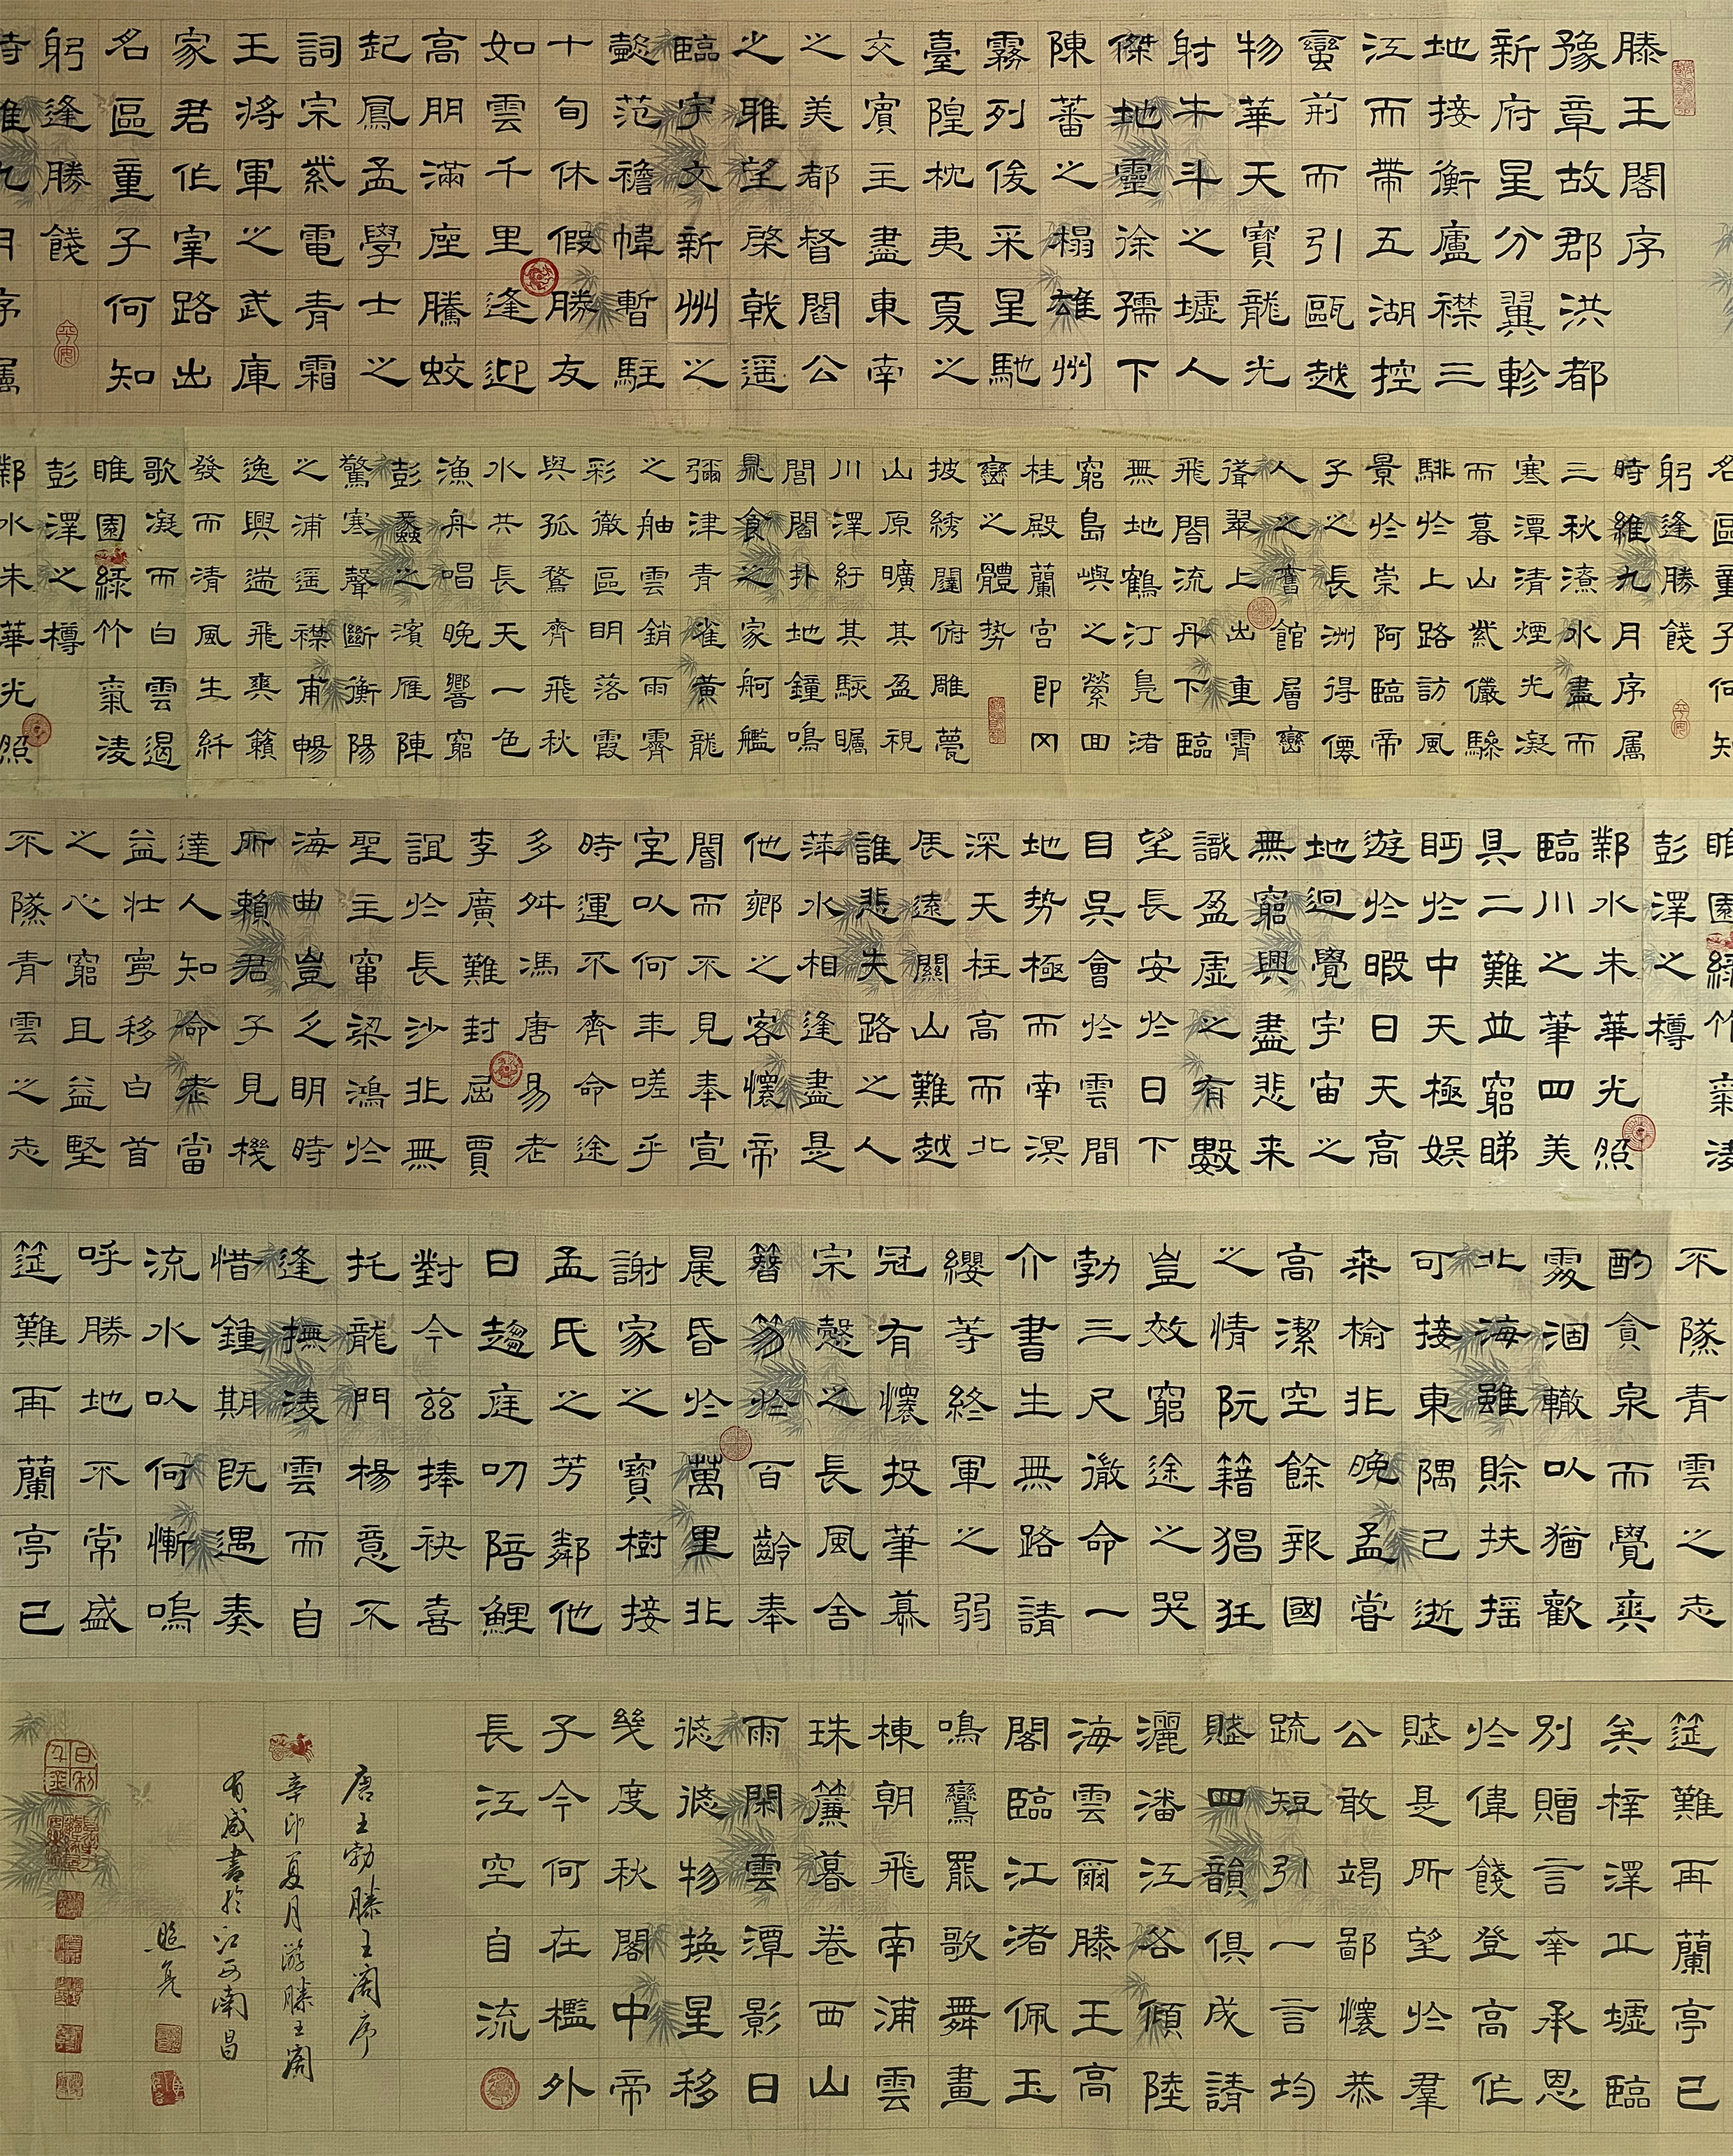 滕王閣序
豫章故郡洪都
新府星分翼軫
地接衡廬襟三
江而帶五湖控
蠻荊而引甌越
物華天寶龍光
射牛斗之墟人
傑地靈徐孺下
陳蕃之榻雄州
霧列俊采星馳
臺隍枕夷夏之
交賓主盡東南
之美都督閻公
之雅望棨戟遥
臨宇文新州之
懿范襜帷暫駐
十旬休假勝友
如雲千里逢迎
高朋滿座騰蛟
起鳳孟學士之
詞宗紫電青霜
王將軍之武庫
家君作宰路出
名區童子何知
躬逢勝餞
時維九月序属
名區童子何知
躬逢勝餞
時維九月序属
三秋潦水盡而
寒潭清煙光凝
而暮山紫儼驂
騑於上路訪風
景於崇阿臨帝
子之長洲得僊
人之舊館層巒
聳翠上出重霄
飛閣流丹下臨
無地鶴汀鳧渚
窮島嶼之縈回
桂殿蘭宮即冈
巒之體勢
披綉闥俯雕甍
山原曠其盈視
川澤紆其駭矚
閭閻扑地鐘鳴
鼎食之家舸艦
彌津青雀黃龍
之舳雲銷雨霽
彩徹區明落霞
與孤鶩齊飛秋
水共長天一色
漁舟唱晚響窮
彭蠡之濱雁陣
驚寒聲斷衡陽
之浦遥襟甫暢
逸興遄飛爽籟
發而清風生纤
歌凝而白雲遏
睢園綠竹氣凌
彭澤之樽
鄴水朱華光照
睢園綠竹氣凌
彭澤之樽
鄴水朱華光照
臨川之筆四美
具二難並窮睇
眄於中天極娱
遊於暇日天高
地迥覺宇宙之
無窮興盡悲来
識盈虛之有數
望長安於日下
目吳會於雲間
地勢極而南溟
深天柱高而北
辰遠關山難越
誰悲失路之人
萍水相逢盡是
他鄉之客懷帝
閽而不見奉宣
室以何年嗟乎
時運不齊命途
多舛馮唐易老
李廣難封屈賈
誼於長沙非無
聖主竄梁鴻於
海曲豈乏明時
所賴君子見機
達人知命老當
益壯寧移白首
之心窮且益堅
不隊青雲之志
不隊青雲之志
酌貪泉而覺爽
處涸轍以猶歡
北海雖賒扶摇
可接東隅已逝
桑榆非晚孟嘗
高潔空餘報國
之情阮籍猖狂
豈效窮途之哭
勃三尺微命一
介書生無路請
纓等終軍之弱
冠有懷投筆慕
宗慤之長風舍
簪笏於百齡奉
晨昏於萬里非
謝家之寶樹接
孟氏之芳鄰他
日趨庭叨陪鯉
對今兹捧袂喜
托龍門楊意不
逢撫凌雲而自
惜鍾期既遇奏
流水以何慚嗚
呼勝地不常盛
筵難再蘭亭已
筵難再蘭亭已
矣梓澤丘墟臨
別贈言幸承恩
於偉餞登高作
賦是所望於羣
公敢竭鄙懷恭
疏短引一言均
賦四韻俱成請
灑潘江各傾陸
海雲爾滕王高
閣臨江渚佩玉
鳴鸞罷歌舞畫
棟朝飛南浦雲
珠簾暮卷西山
雨閑雲潭影日
悠悠物换星移
幾度秋閣中帝
子今何在檻外
長江空自流
唐王勃滕王阁序
辛卯夏月游滕王阁
有感書於江西南昌